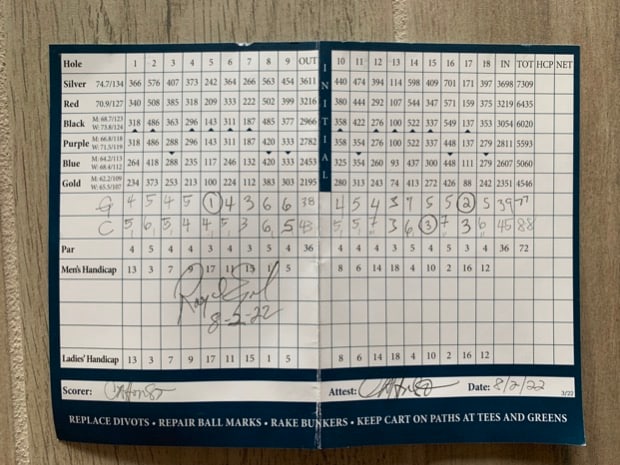 Hole 1 2 3 4 5 6 7 8 9 OUT INITIAL 10 11 12 13 14 15 16 17 18 IN TOT HCP NET
Silver 74.7/134 366 576 407 373 242 364 266 563 454 3611 440 474 394 114 598 409 701 171 397 3698 7309
Red 70.9/127 340 508 385 318 209 333 222 502 399 3216 380 444 292 107 544 347 571 159 375 3219 6435
Black M: 68.7/123 W: 73.8/124 318 486 363 296 143 311 187 485 377 2966 358 422 276 100 522 337 549 137 353 3054 6020
Purple M: 66.8/118 W: 71.5/119 318 486 288 296 143 311 187 420 333 2782 358 354 276 100 522 337 448 137 279 2811 5593
Blue M: 64.2/113 W: 68.4/112 264 418 288 235 117 246 132 420 333 2453 325 354 260 93 437 300 448 111 279 2607 5060
Gold M: 62.2/109 W: 65.5/107 234 373 253 213 100 224 112 383 303 2195 280 313 243 74 413 272 426 88 242 2351 4546
G 4 5 4 5 1 4 3 6 6 38 4 5 4 3 7 5 5 2 5 39 77
C 5 6 5 4 4 5 3 6 5 43 5 5 7 3 6 3 7 3 6 45 88
Par 4 5 4 4 3 4 3 4 5 36 4 4 4 3 5 4 5 3 4 36 72
Men's Handicap 13 3 7 9 17 11 15 1 5 8 6 14 18 4 10 2 16 12
8-2-22
Ladies' Handicap 13 3 7 9 17 11 15 1 5 8 6 14 18 4 10 2 16 12
Scorer: Attest: Date: 8/2/22 3/22
REPLACE DIVOTS • REPAIR BALL MARKS • RAKE BUNKERS • KEEP CART ON PATHS AT TEES AND GREENS